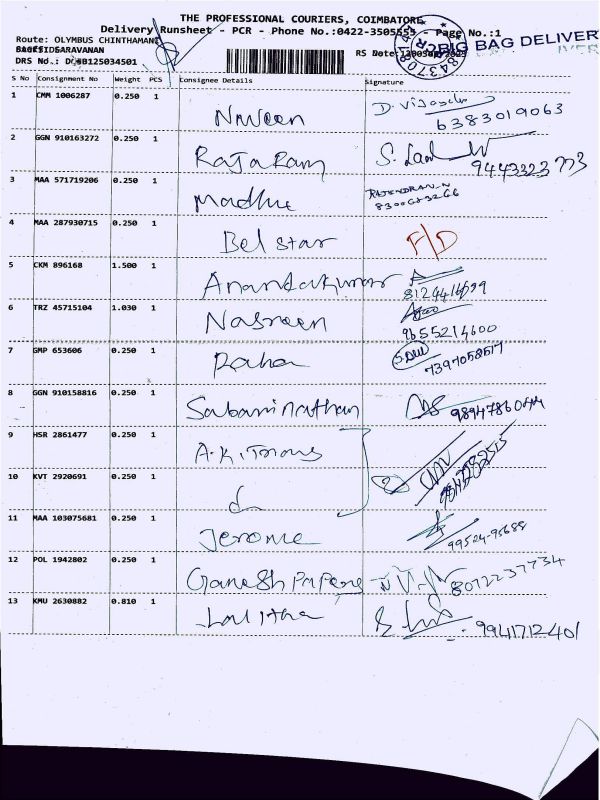 THE PROFESSIONAL COURIERS, COIMBATORE
Delivery Runsheet - PCR - Phone No.:0422-3505555 - Page No.:1
Route: OLYMBUS CHINTHAMANI
SARAVANAN
DRS No.:
BIG BAG DELIVERY
S No Consignment No Weight PCS Consignee Details Signature
1 CMM 1006287 0.250 1 Naveen 6383019063
2 GGN 910163272 0.250 1 RajaRam
3 MAA 571719206 0.250 1 Madhu RAJENDRAN.N
4 MAA 287930715 0.250 1 Belstar F/D
5 CKM 896168 1.500 1 Anandakumar
6 TRZ 45715104 1.030 1 Nasreen 9655214600
7 GMP 653606 0.250 1
8 GGN 910158816 0.250 1 Sabarinathan
9 HSR 2861477 0.250 1
10 KVT 2920691 0.250 1
11 MAA 103075681 0.250 1 Jerome 99524-95688
12 POL 1942802 0.250 1 Ganesh 8072237734
13 KMU 2630882 0.810 1 Lalitha 9941712401